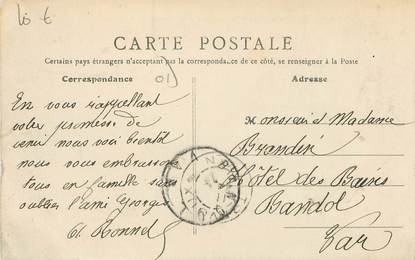 10 €
CARTE POSTALE
Certains pays étrangers n'acceptant pas la correspondance de ce côté, se renseigner à la Poste
Correspondance
01
Adresse
En vous rappellant
votre promesse de
venir nous voir bientôt
nous vous embrassons
tous en famille sans
oublier l'ami Georges
Monsieur et Madame
Brandin
Hôtel des Bains
Bandol
Var